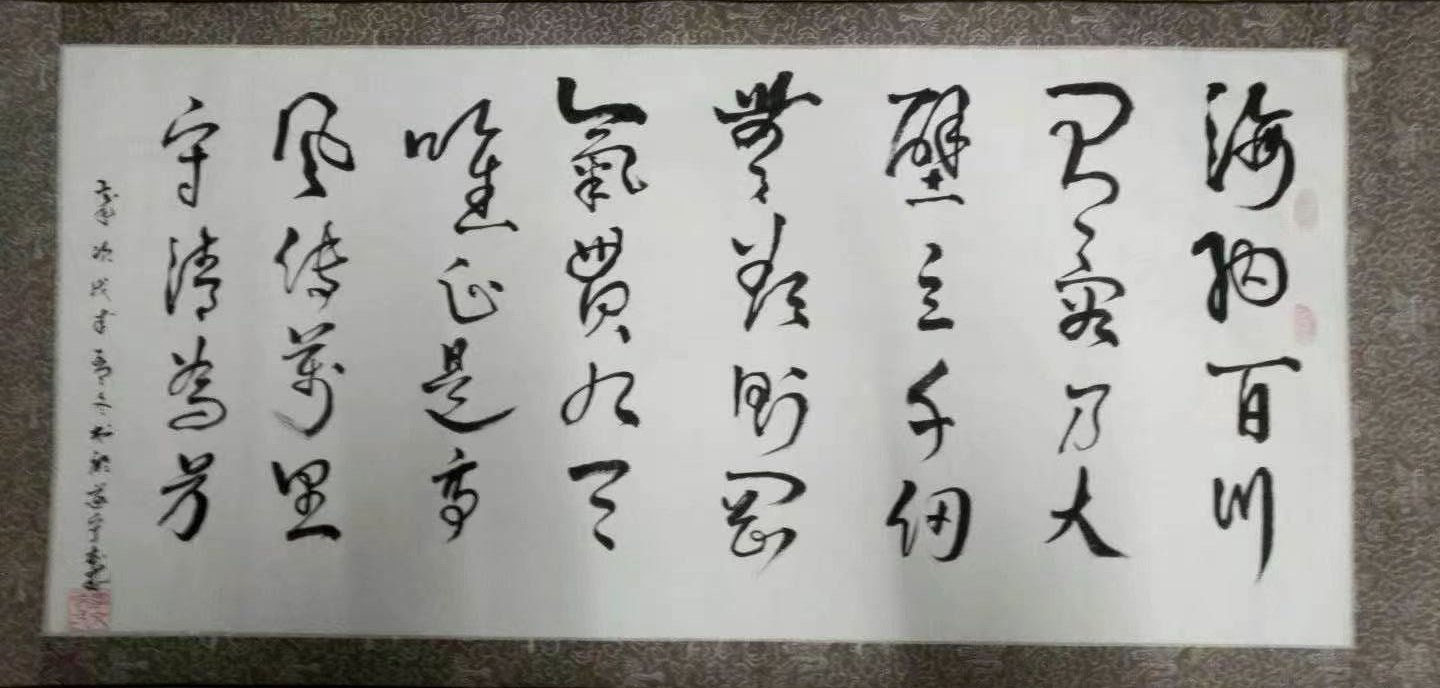 海納百川
有容乃大
壁立千仞
無欲則剛
氣貫九天
唯正是高
風傳萬里
守清為芳
歲次戊